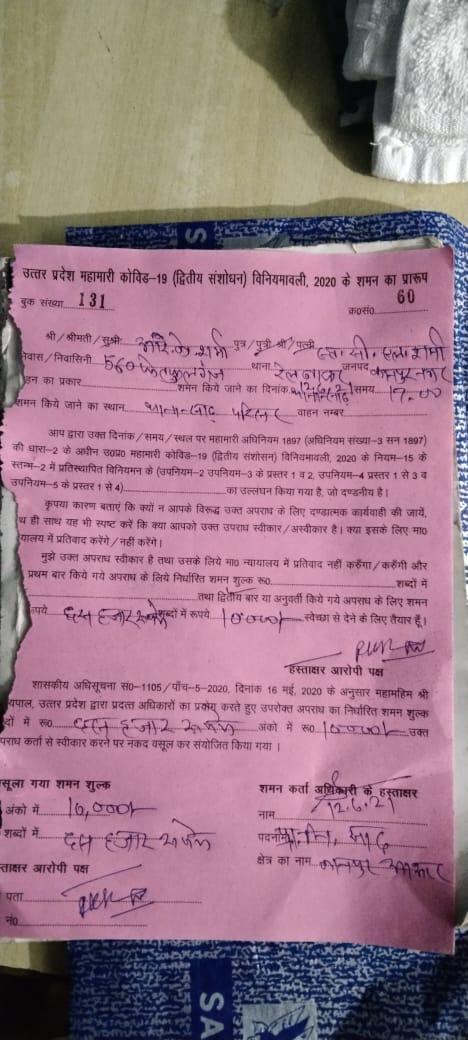 उत्तर प्रदेश महामारी कोविड-19 (द्वितीय संशोधन) विनियमावली, 2020 के शमन का प्रारूप
बुक संख्या 131 क्र०सं० 60
श्री/श्रीमती/सुश्री आर० के० शर्मा पुत्र/पुत्री श्री/पत्नी एल० शर्मा
निवास/निवासिनी 560 थाना रेल बाजार जनपद कानपुर नगर
हन का प्रकार शमन किये जाने का दिनांक 12.6.21 समय 17.00
शमन किये जाने का स्थान परिसर वाहन नम्बर
आप द्वारा उक्त दिनांक/समय/स्थल पर महामारी अधिनियम 1897 (अधिनियम संख्या-3 सन 1897)
की धारा-2 के अधीन उ०प्र० महामारी कोविड-19 (द्वितीय संशोधन) विनियमावली, 2020 के नियम-15 के
स्तम्भ-2 में प्रतिस्थापित विनियमन के (उपविनियम-2 उपविनियम-3 के प्रस्तर 1 व 2, उपविनियम-4 प्रस्तर 1 से 3 व
उपविनियम-5 के प्रस्तर 1 से 4) का उल्लंघन किया गया है, जो दण्डनीय है।
कृपया कारण बताएं कि क्यों न आपके विरूद्ध उक्त अपराध के लिए दण्डात्मक कार्यवाही की जायें,
थ ही साथ यह भी स्पष्ट करें कि क्या आपको उक्त उपराध स्वीकार/अस्वीकार है। क्या इसके लिए मा०
यालय में प्रतिवाद करेंगे/नहीं करेंगे।
मुझे उक्त अपराध स्वीकार है तथा उसके लिये मा० न्यायालय में प्रतिवाद नहीं करूँगा/करूँगी और
प्रथम बार किये गये अपराध के लिये निर्धारित शमन शुल्क रू० शब्दों में
तथा द्वितीय बार या अनुवर्ती किये गये अपराध के लिए शमन
पये दस हजार रूपये शब्दों में रूपये 10000/- स्वेच्छा से देने के लिए तैयार हूँ।
हस्ताक्षर आरोपी पक्ष
शासकीय अधिसूचना सं०-1105/पाँच-5-2020, दिनांक 16 मई, 2020 के अनुसार महामहिम श्री
यपाल, उत्तर प्रदेश द्वारा प्रदत्त अधिकारों का प्रयोग करते हुए उपरोक्त अपराध का निर्धारित शमन शुल्क
दों में रू० दस हजार रूपये अंको में रू० 10000/- उक्त
पराध कर्ता से स्वीकार करने पर नकद वसूल कर संयोजित किया गया।
सूला गया शमन शुल्क शमन कर्ता अधिकारी के हस्ताक्षर
अंको में 10,000/- नाम 12.6.21
शब्दों में दस हजार रूपये पदनाम
क्षेत्र का नाम कानपुर नगर
ताक्षर आरोपी पक्ष
पता
नं०
SA